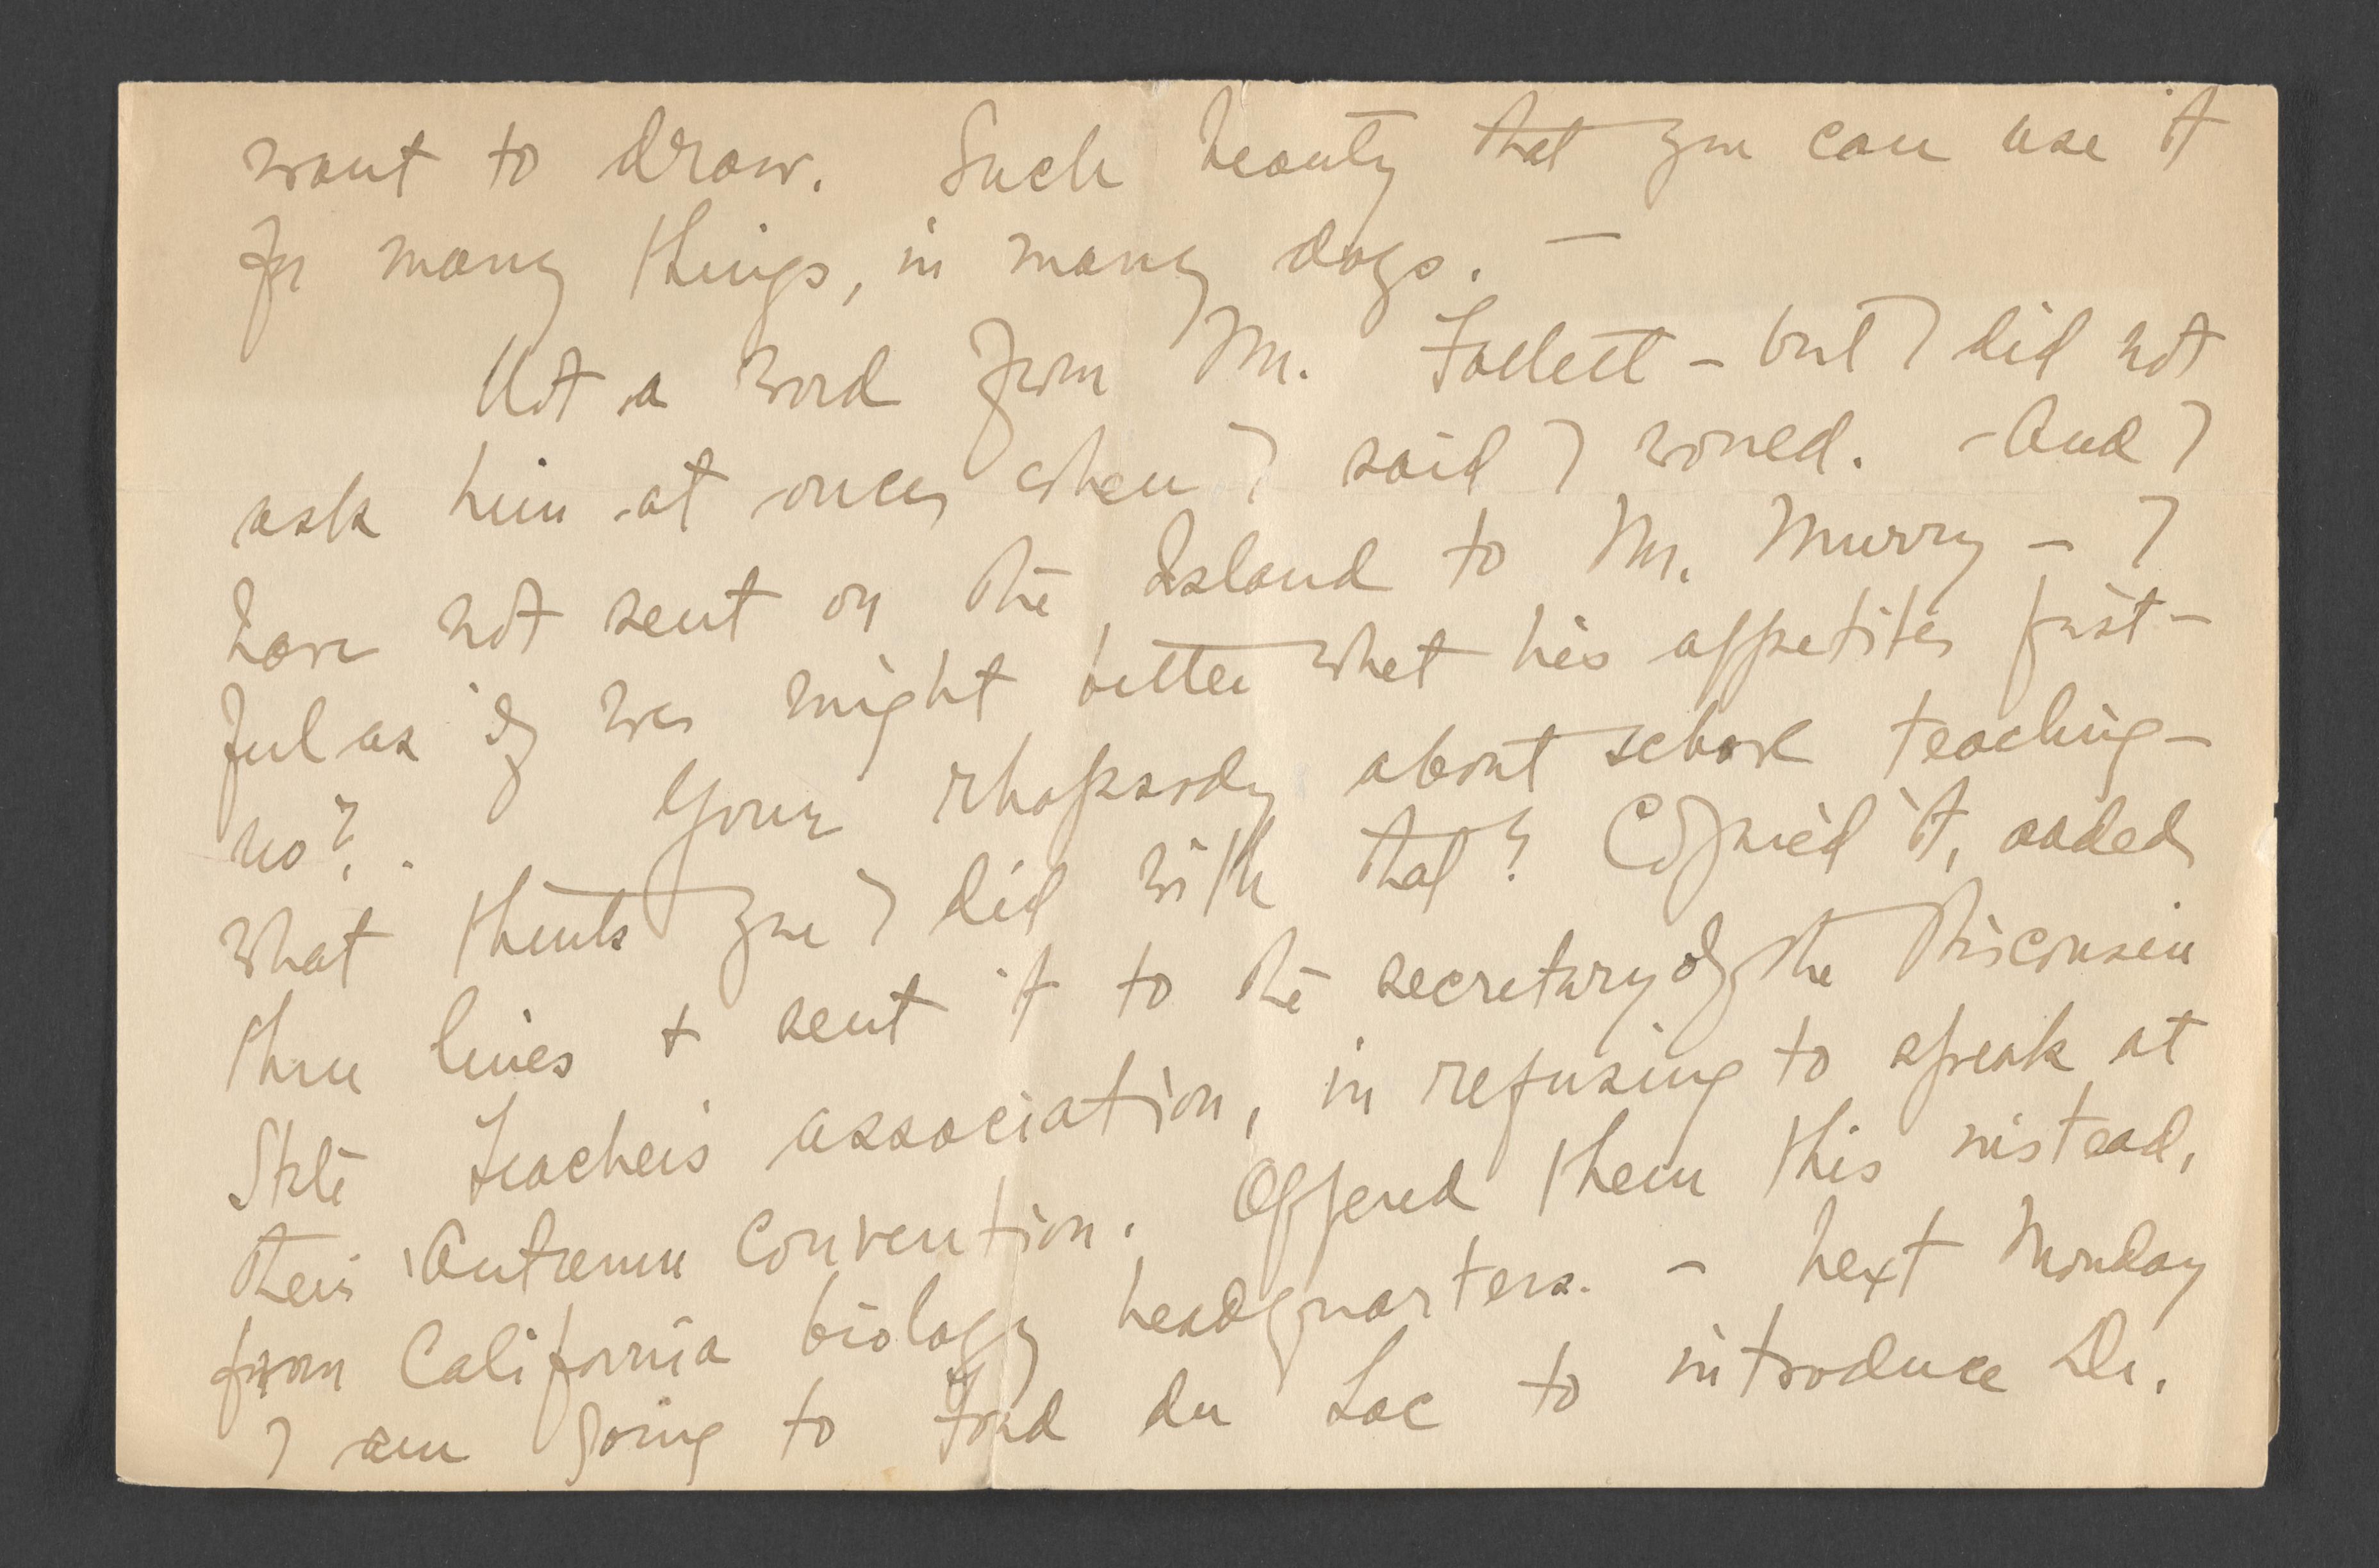 want to draw. Such beauty that you can use it
for many things, in many days. —
Not a word from Mr. Follett – but I did not
ask him at once, when I said I would. – And I
have not sent on the Island to Mr. Murry – I
feel as if we might better whet his appetite, first –
no? . Your rhapsody about school teaching –
what think you I did with that? Copied it, added
three lines + sent it to the secretary of the Wisconsin
State Teacher's association, in refusing to speak at
their Autumn Convention. Offered them this instead,
from California biology headquarters. – Next Monday
I am going to Fond du Lac to introduce Dr.